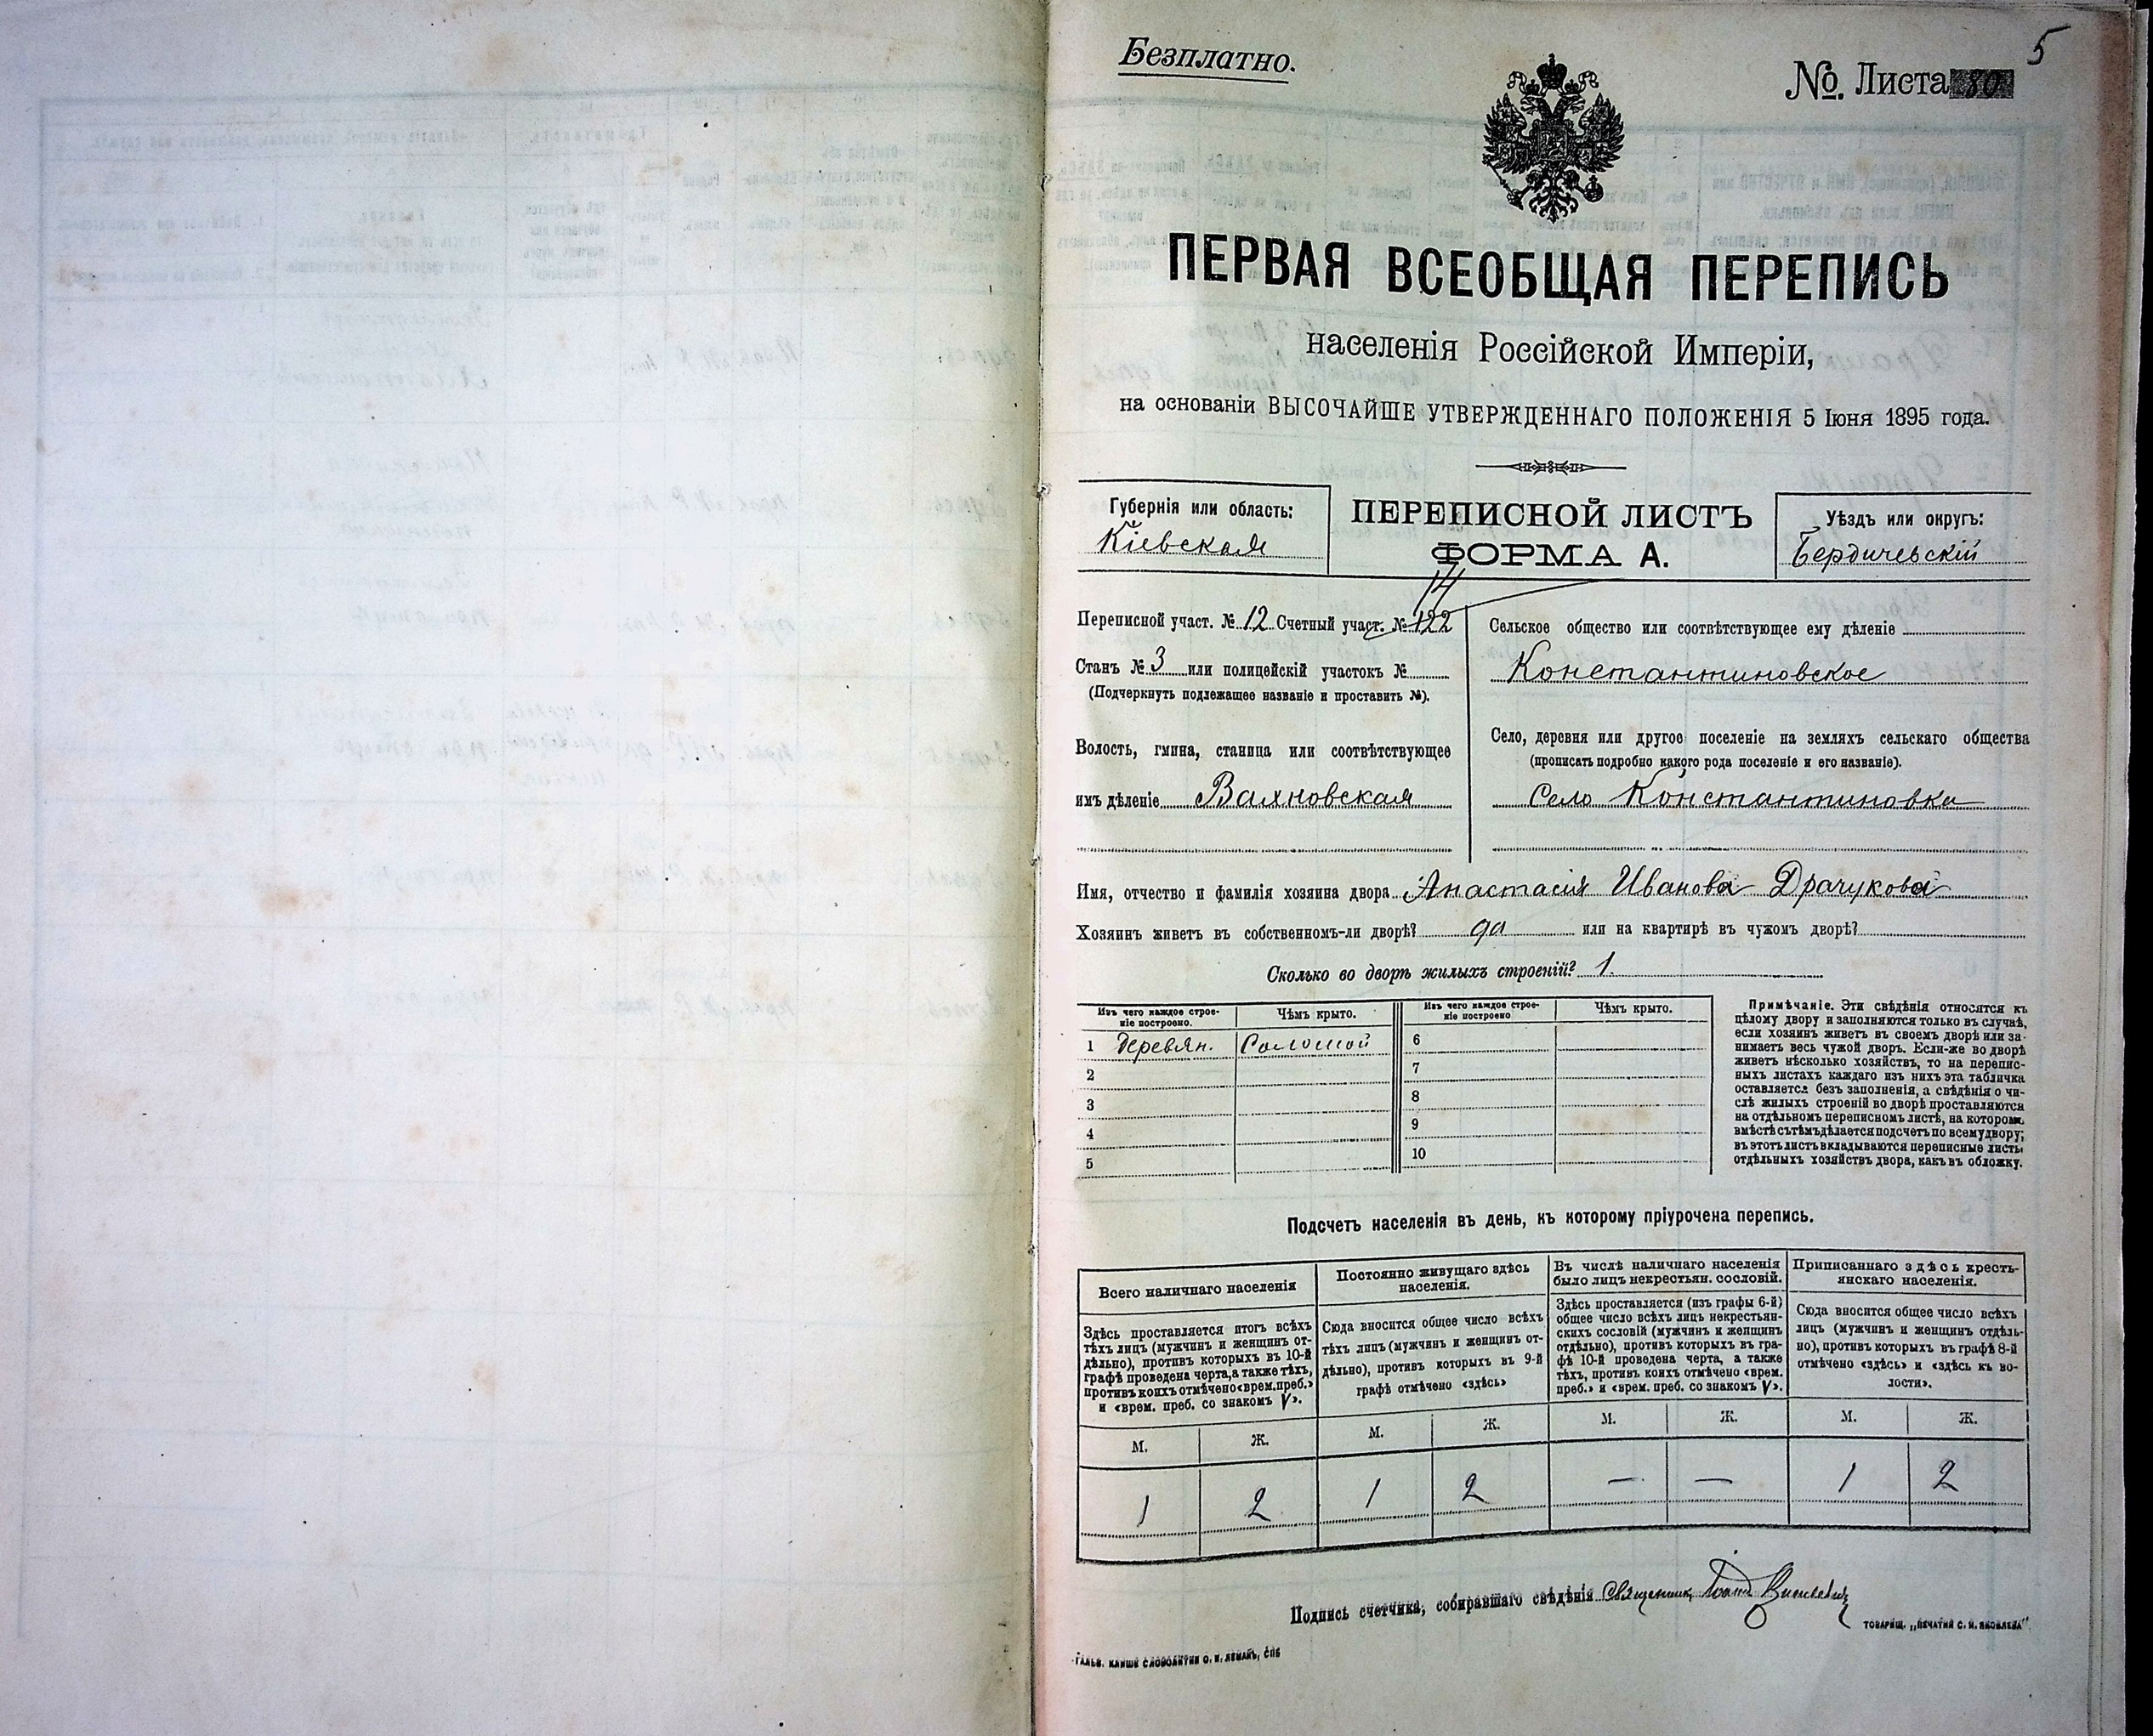 5
Безплатно.
№. Листа 80
ПЕРВАЯ ВСЕОБЩАЯ ПЕРЕПИСЬ
населенія Россійской Имперіи,
на основаніи ВЫСОЧАЙШЕ УТВЕРЖДЕННАГО ПОЛОЖЕНІЯ 5 Іюня 1895 года.
Губернія или область:
Кіевская
ПЕРЕПИСНОЙ ЛИСТЪ
ФОРМА А.
Уѣздъ или округъ:
Бердичевскій
14
Переписной участ. № 12 Счетный участ. № 122
Станъ № 3 или полицейскій участокъ №
(Подчеркнуть подлежащее названіе и проставить №).
Волость, гмина, станица или соотвѣтствующее
имъ дѣленіе Вахновская
Сельское общество или соотвѣтствующее ему дѣленіе
Константиновское
Село, деревня или другое поселеніе на земляхъ сельскаго общества
(прописать подробно какого рода поселеніе и его названіе).
Село Константиновка
Имя, отчество и фамилія хозяина двора Анастасія Иванова Драчукова
Хозяинъ живетъ въ собственномъ-ли дворѣ? да или на квартирѣ въ чужомъ дворѣ?
Сколько во дворѣ жилыхъ строеній? 1.
Изъ чего каждое строе-
ніе построено.
Чѣмъ крыто.
Изъ чего каждое строе-
ніе построено
Чѣмъ крыто.
1 Деревян. Соломой 6
2 7
3 8
4 9
5 10
Примѣчаніе. Эти свѣдѣнія относятся къ
цѣлому двору и заполняются только въ случаѣ,
если хозяинъ живетъ въ своемъ дворѣ или за-
нимаетъ весь чужой дворъ. Если-же во дворѣ
живетъ нѣсколько хозяйствъ, то на перепис-
ныхъ листахъ каждаго изъ нихъ эта табличка
оставляется безъ заполненія, а свѣдѣнія о чи-
слѣ жилыхъ строеній во дворѣ проставляются
на отдѣльномъ переписномъ листѣ, на которомъ
вмѣстѣ съ тѣмъ дѣлается подсчетъ по всему двору;
въ этотъ листъ вкладываются переписные листы
отдѣльныхъ хозяйствъ двора, какъ въ обложку.
Подсчетъ населенія въ день, къ которому пріурочена перепись.
Всего наличнаго населенія
Здѣсь проставляется итогъ всѣхъ
тѣхъ лицъ (мужчинъ и женщинъ от-
дѣльно), противъ которыхъ въ 10-й
графѣ проведена черта, а также тѣхъ,
противъ коихъ отмѣчено «врем. преб.»
и «врем. преб. со знакомъ V».
Постоянно живущаго здѣсь
населенія.
Сюда вносится общее число всѣхъ
тѣхъ лицъ (мужчинъ и женщинъ от-
дѣльно), противъ которыхъ въ 9-й
графѣ отмѣчено «здѣсь»
Въ числѣ наличнаго населенія
было лицъ некрестьян. сословій.
Здѣсь проставляется (изъ графы 6-й)
общее число всѣхъ лицъ некрестьян-
скихъ сословій (мужчинъ и женщинъ
отдѣльно), противъ которыхъ въ гра-
фѣ 10-й проведена черта, а также
тѣхъ, противъ коихъ отмѣчено «врем.
преб.» и «врем. преб. со знакомъ V».
Приписаннаго здѣсь кресть-
янскаго населенія.
Сюда вносится общее число всѣхъ
лицъ (мужчинъ и женщинъ отдѣль-
но), противъ которыхъ въ графѣ 8-й
отмѣчено «здѣсь» и «здѣсь къ во-
лости».
М. Ж. М. Ж. М. Ж. М. Ж.
1 2 1 2 — — 1 2
Подпись счетчика, собиравшаго свѣдѣнія Священник Іоанн
ТОВАРИЩ. „ПЕЧАТНЯ С. П. ЯКОВЛЕВА"
ГАЛЬВ. КЛИШЕ СЛОВОЛИТНИ О. И. ЛЕМАНЪ, СПБ